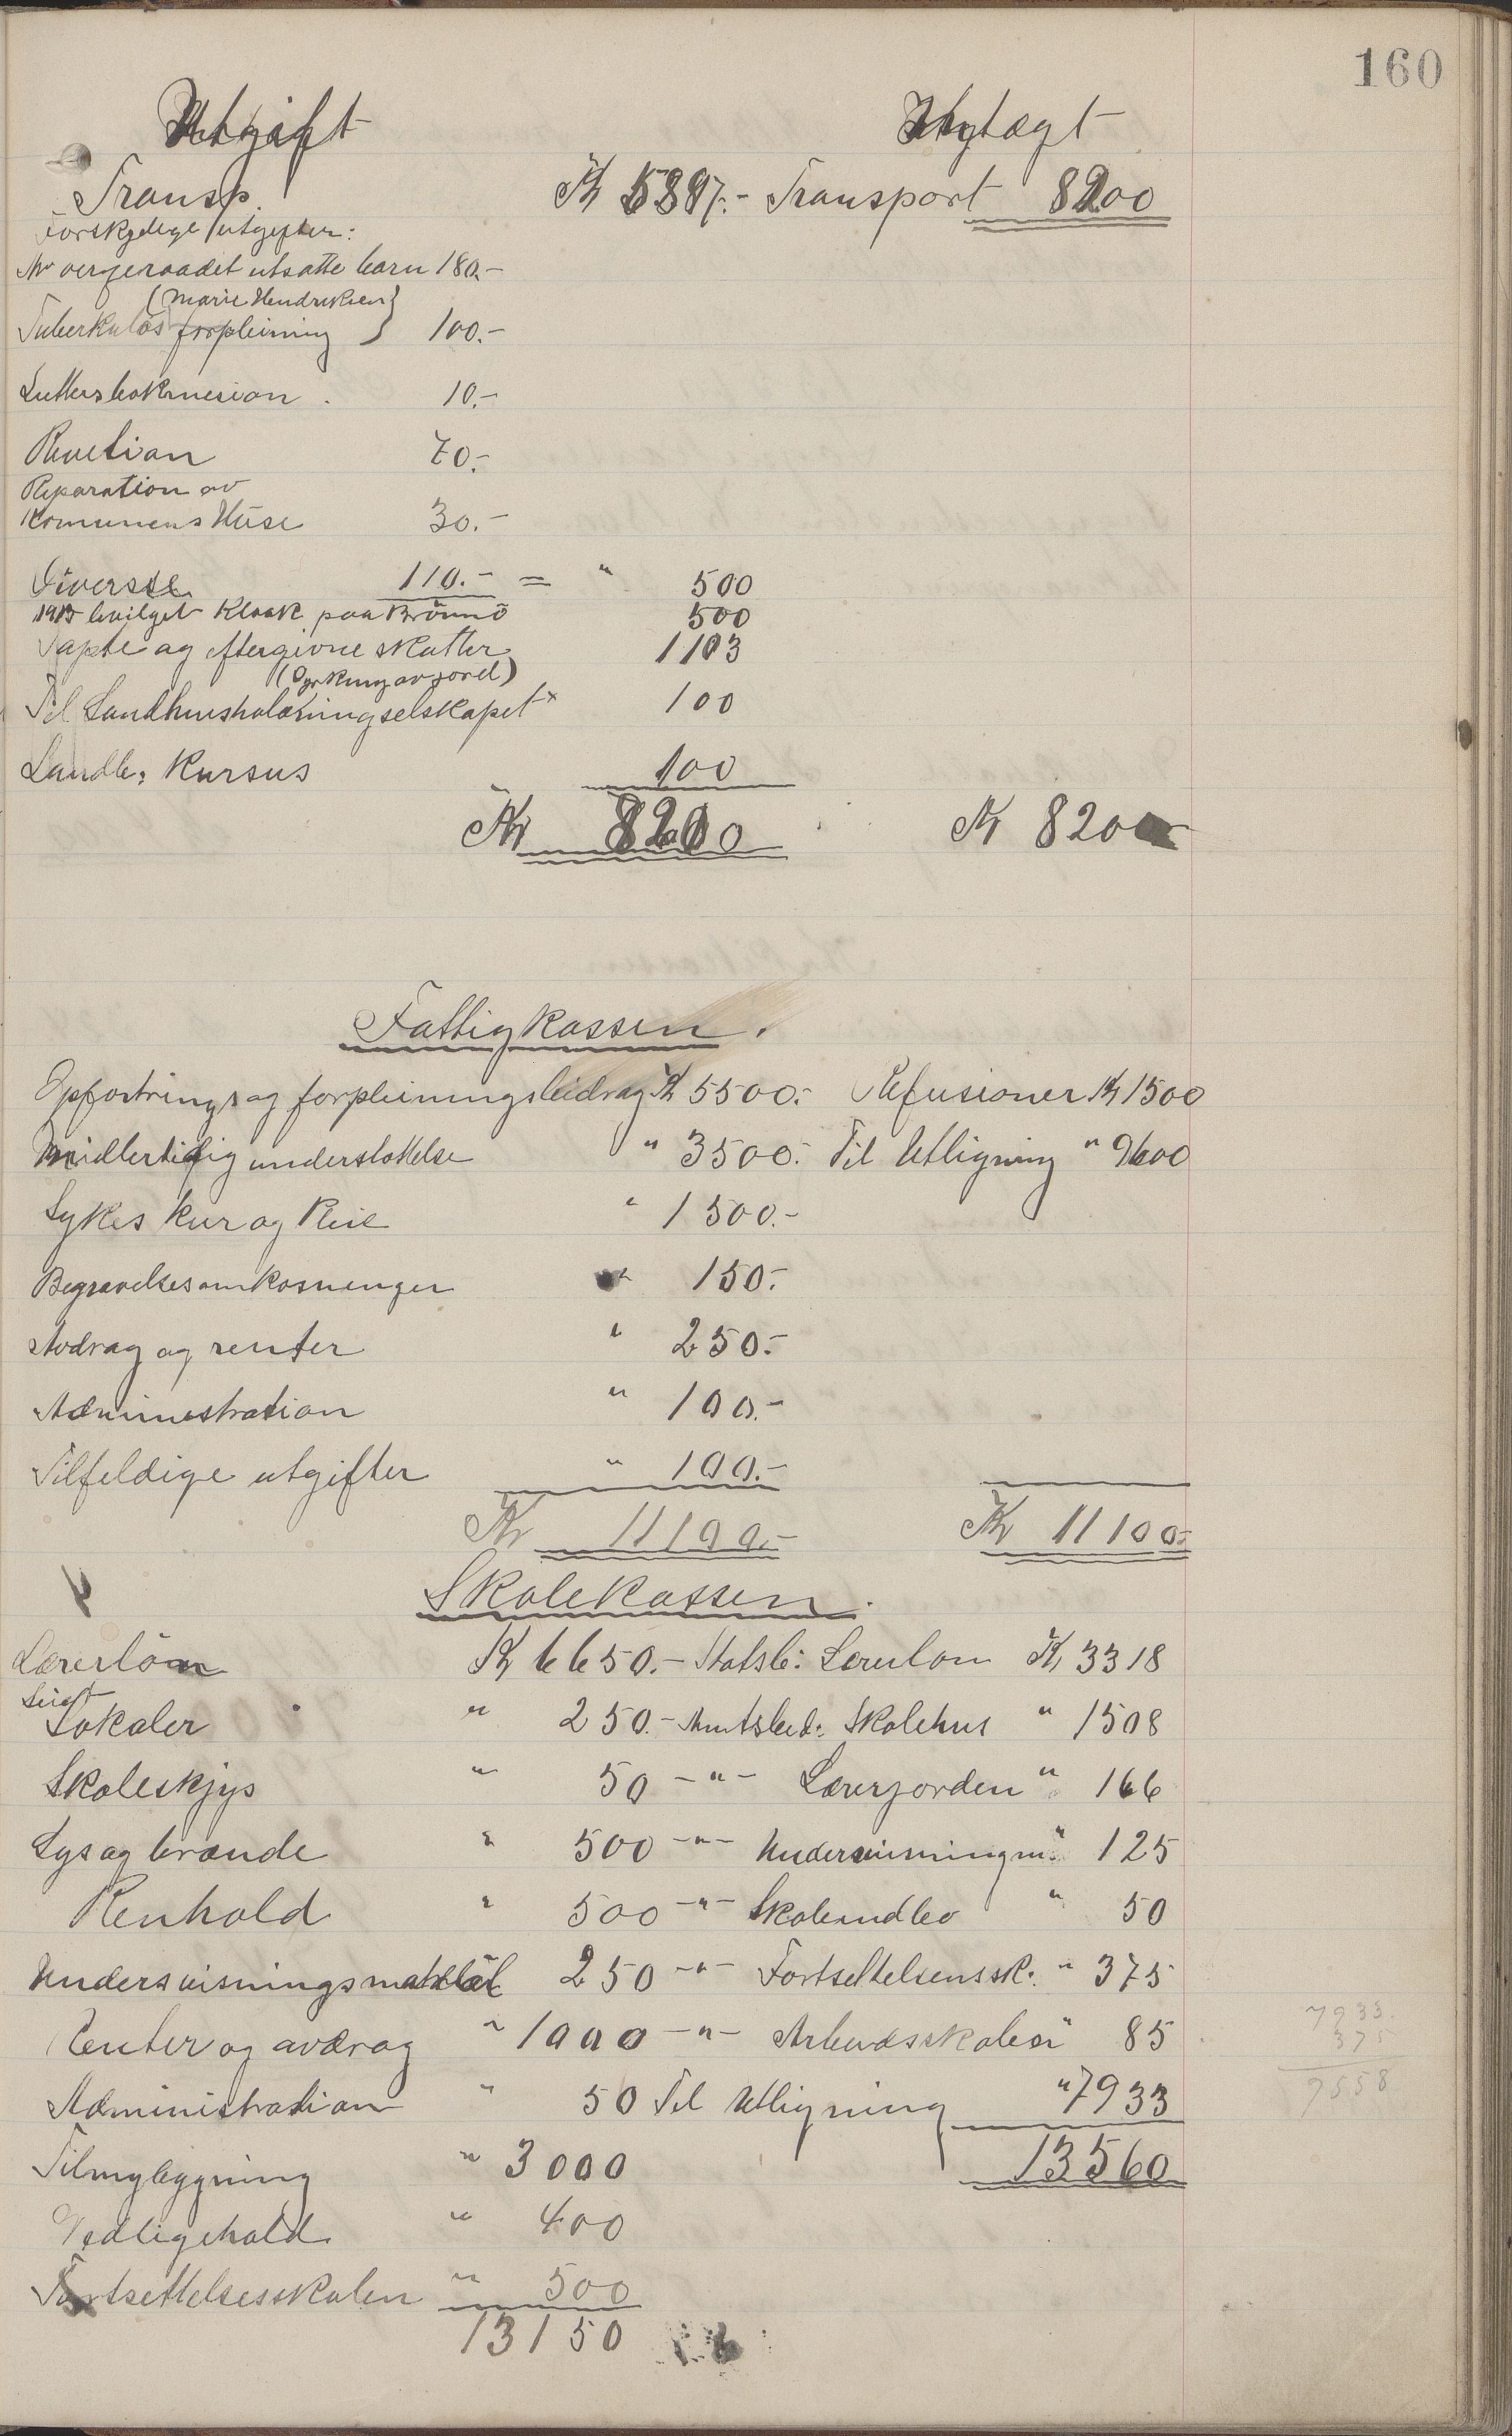 160
Utgift Indtægt
Transp. Kr 5897.- Transport 8200
Forskjelige utgifter:
Av vergeraadet utsatte barn 180.-
(Marie Hendriksen)
Tuberkuløs forpleining } 100.-
10.-
Revetion 70.-
Reparation av
Komunens Huse 30.-
Diverse 110.- = " 500
1915 bevilget Kloak paa Brönnö 500
Tapte og eftergivne skatter 1103
(Dyrkning av jord)
Til Landhusholdningselskapet x 100
Landb: Kursus 100
Kr 8200 Kr 8200
Fattigkassen.
Opfostrings og forpleiningsbidrag Kr 5500.- Refusioner Kr 1500
Midlertidig understøttelse " 3500.- Til Utligning " 9600
Sykes kur og Pleie " 1500.-
Begravelsesomkosninger " 150.-
Avdrag og renter " 250.-
Administration " 100.-
Tilfeldige utgifter " 100.-
Kr 11100.- Kr 11100.-
Skolekassen.
Lærerlön Kr 6650.- Statsb: Lærerløn Kr 3318
Leiet
Lokaler " 250.- Amtsbid: Skolehus " 1508
Skoleskjys " 50 -"- Lærerjorden " 166
Lys og brænde " 500 -"- Undervisningm. " 125
Renhold " 500 -"- " 50
Undersvisningsmateriel 250 -"- Fortsettelsenssk: " 375
Renter og avdrag " 1000 -"- Arbeidsskolen " 85
Administration " 50 Til Utligning " 7933
Tilnybygning " 3000 13560
Vedligehold " 400
Fortsettelsesskolen " 500
13150
7933.
375
7558